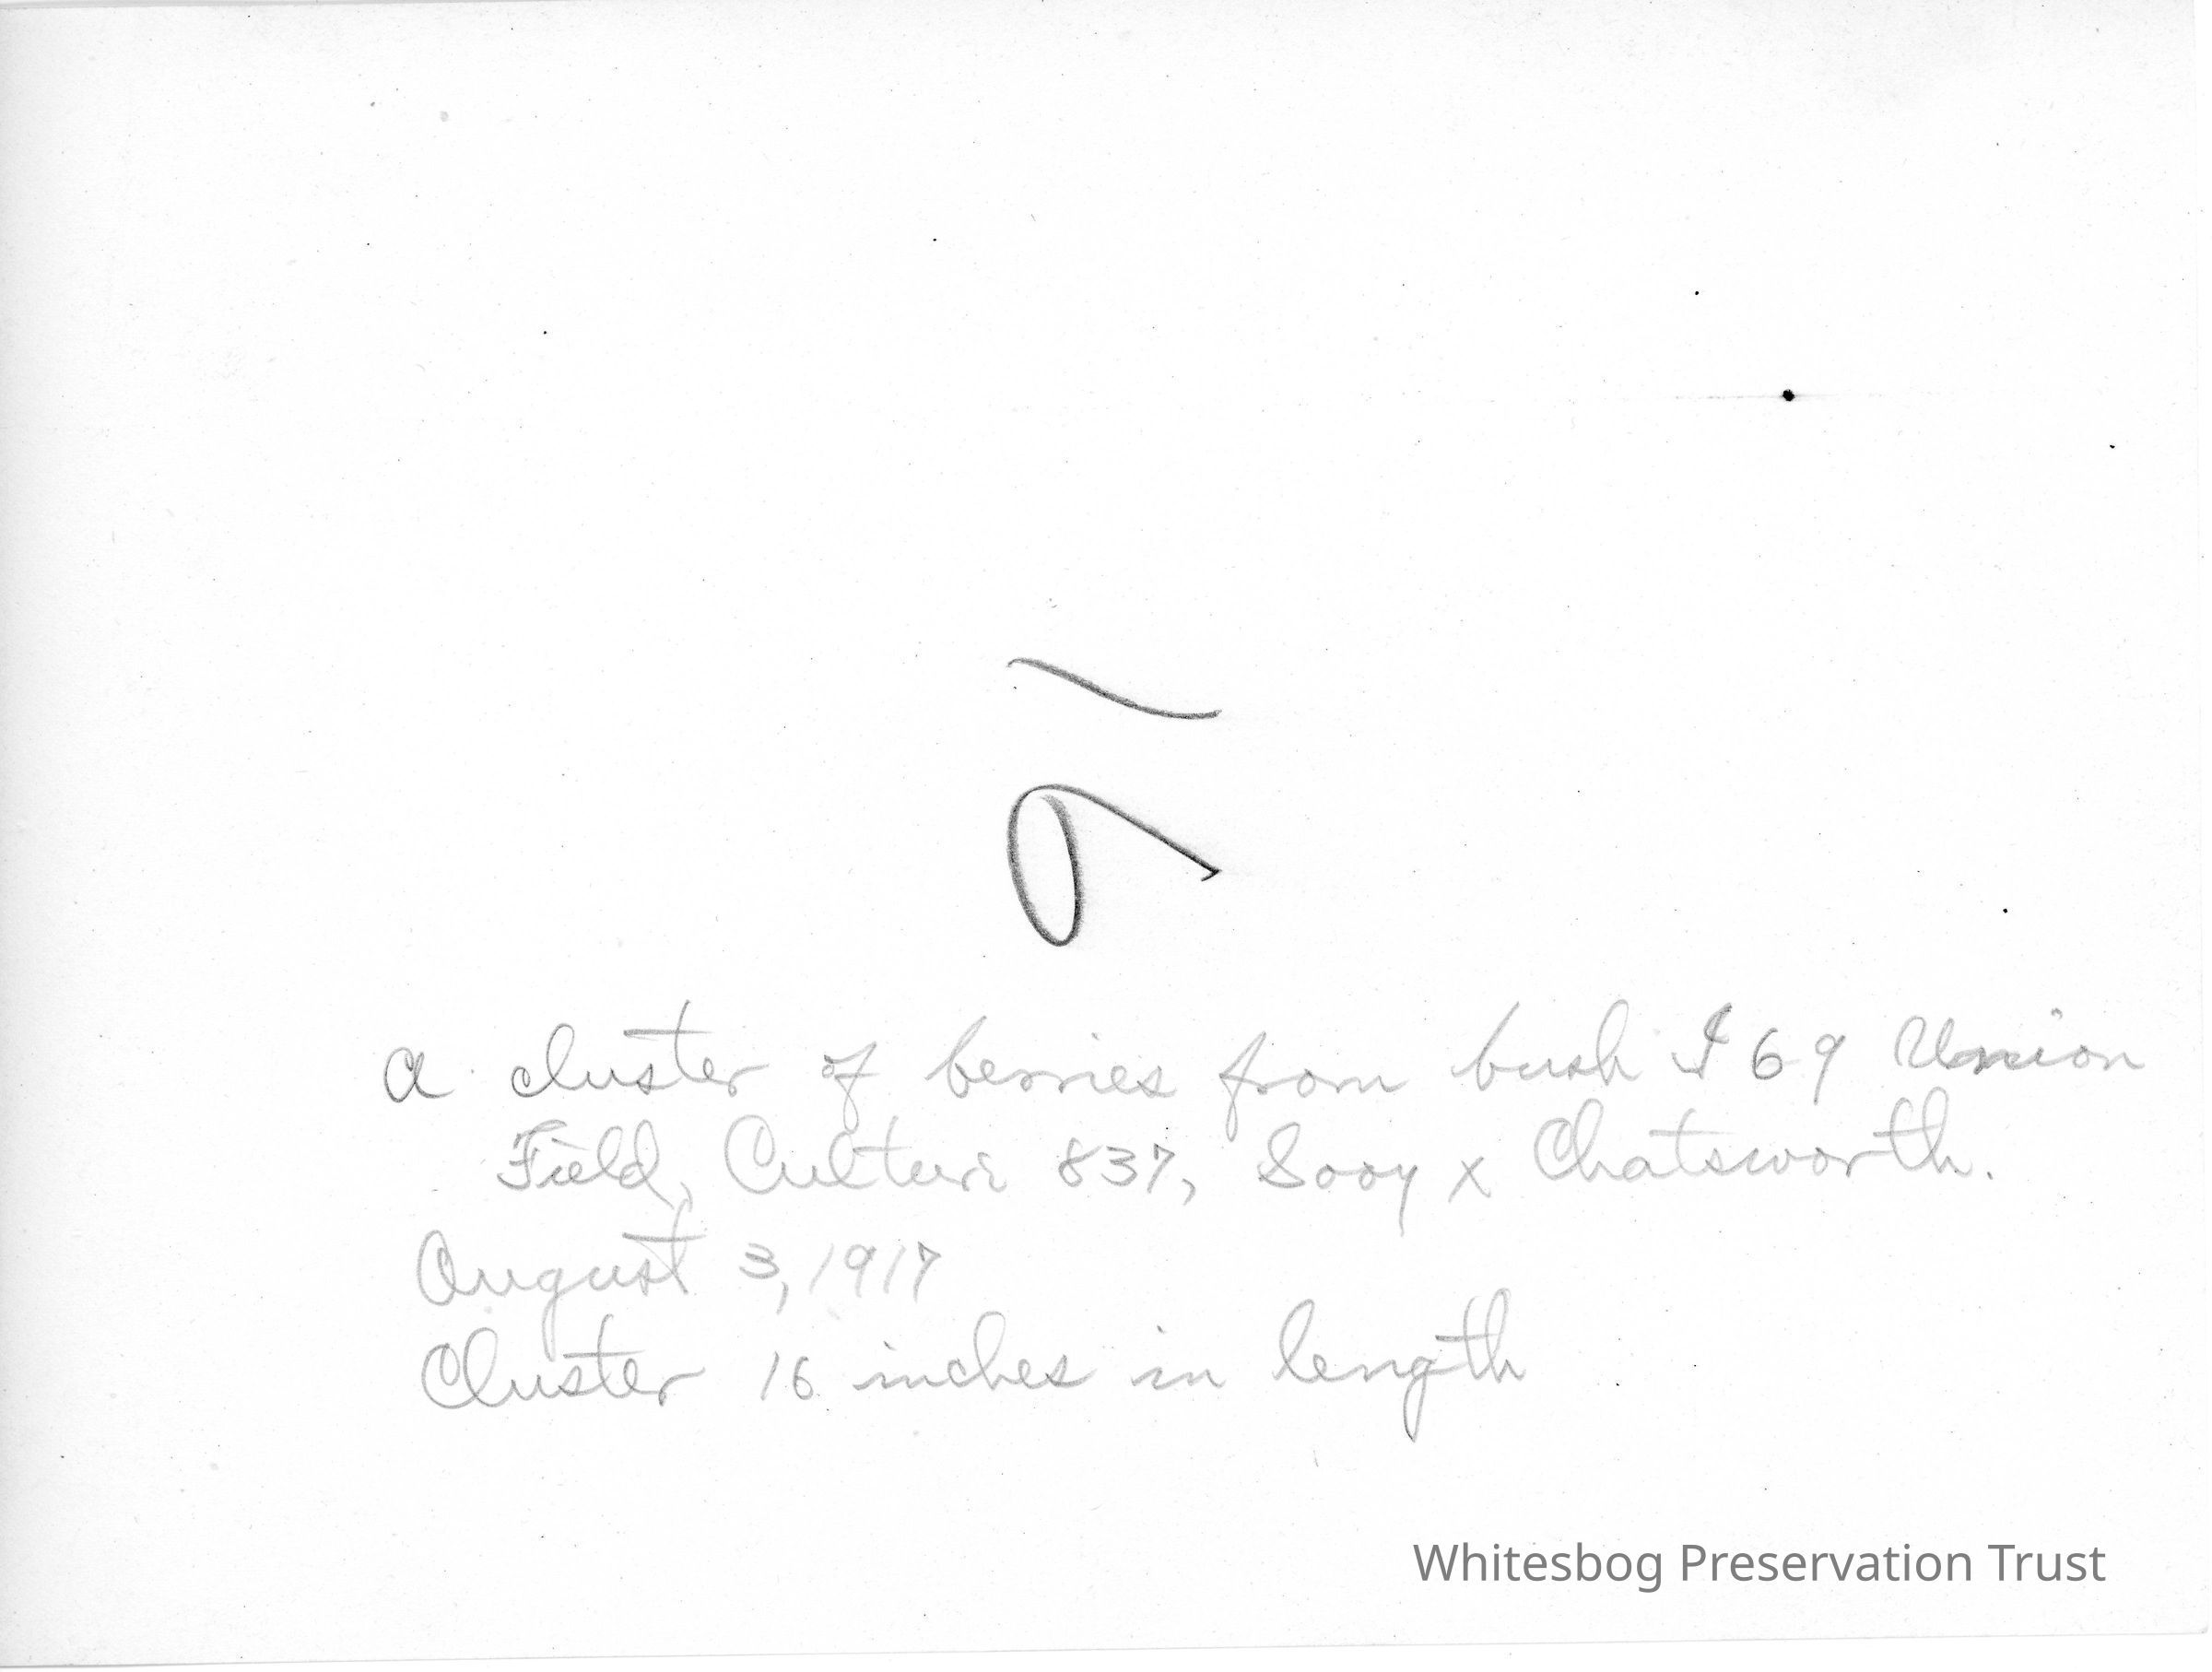 91
A cluster of berries from bush I 69 Union
Field, Culture 837, Sooy x Chatsworth.
August 3, 1917
Cluster 16 inches in length
Whitesbog Preservation Trust